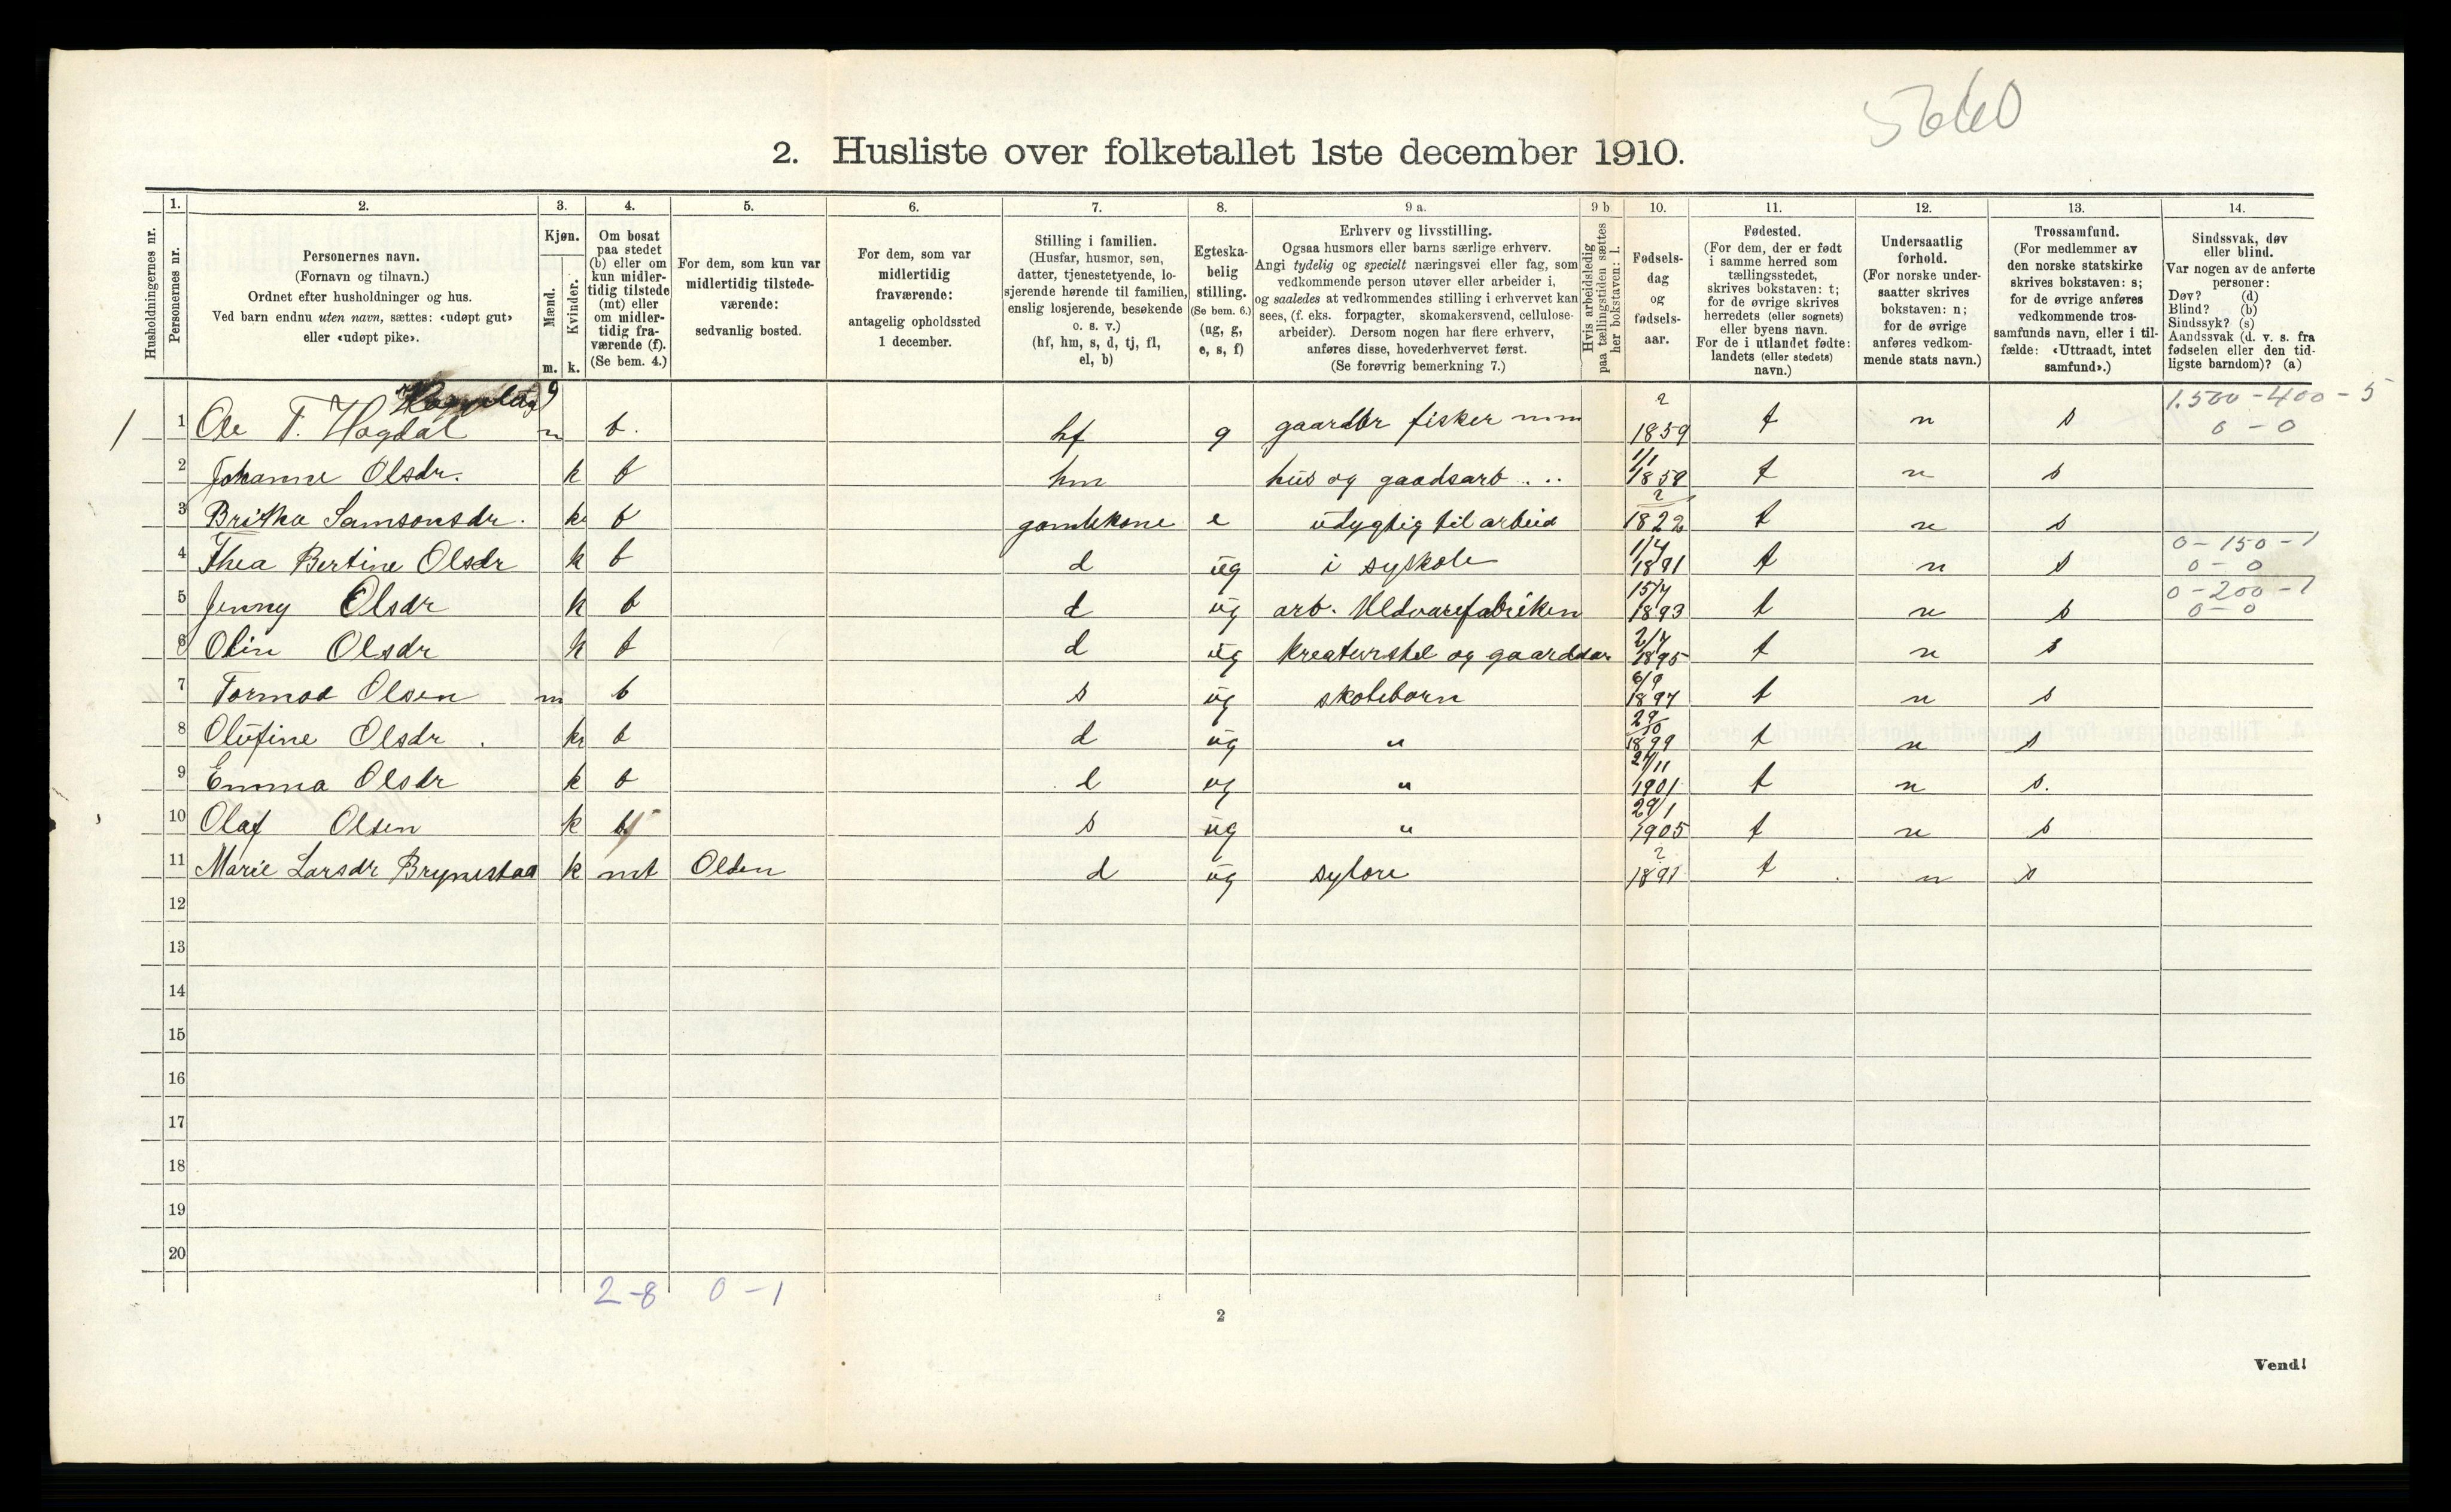 5660
2. Husliste over folketallet 1ste december 1910.
Husholdningernes nr.
1. Personernes nr.
2. Personernes navn. (Fornavn og tilnavn.) Ordnet efter husholdninger og hus. Ved barn endnu uten navn, sættes: «udøpt gut» eller «udøpt pike».
3. Kjøn. Mænd. m. Kvinder. k.
4. Om bosat paa stedet (b) eller om kun midler-tidig tilstede (mt) eller om midler-tidig fra-værende (f). (Se bem. 4.)
5. For dem, som kun var midlertidig tilstede-værende: sedvanlig bosted.
6. For dem, som var midlertidig fraværende: antagelig opholdssted 1 december.
7. Stilling i familien. (Husfar, husmor, søn, datter, tjenestetyende, lo-sjerende hørende til familien, enslig losjerende, besøkende o. s. v.) (hf, hm, s, d, tj, fl, el, b)
8. Egteska-belig stilling. (Se bem. 6.) (ug, g, e, s, f)
9 a. Erhverv og livsstilling. Ogsaa husmors eller barns særlige erhverv. Angi tydelig og specielt næringsvei eller fag, som vedkommende person utøver eller arbeider i, og saaledes at vedkommendes stilling i erhvervet kan sees, (f. eks. forpagter, skomakersvend, cellulose-arbeider). Dersom nogen har flere erhverv, anføres disse, hovederhvervet først. (Se forøvrig bemerkning 7.)
9 b Hvis arbeidsledig paa tællingstiden sættes her bokstaven: l.
10. Fødsels-dag og fødsels-aar.
11. Fødested. (For dem, der er født i samme herred som tællingsstedet, skrives bokstaven: t; for de øvrige skrives herredets (eller sognets) eller byens navn. For de i utlandet fødte: landets (eller stedets) navn.)
12. Undersaatlig forhold. (For norske under-saatter skrives bokstaven: n; for de øvrige anføres vedkom-mende stats navn.)
13. Trossamfund. (For medlemmer av den norske statskirke skrives bokstaven: s; for de øvrige anføres vedkommende tros-samfunds navn, eller i til-fælde: «Uttraadt, intet samfund».)
14. Sindssvak, døv eller blind. Var nogen av de anførte personer: Døv? (d) Blind? (b) Sindssyk? (s) Aandssvak (d. v. s. fra fødselen eller den tid-ligste barndom)? (a)
1 1 Ole T. Hagdal m b. hf g gaardbr fisker mm ? 1859 t n s 1.500 - 400 - 5 0 - 0
2 Johanne Olsdr. k b hm hus og gaadsarb . .. 1/1 1858 t n s
3 Britha Samsonsdr. k b gamlekone e udygtig til arbeid ? 1822 t n s
4 Thea Bertine Olsdr k b d ug i syskole 1/4 1891 t n s 0 - 150 - 1 0 - 0
5 Jenny Olsdr k b d ug arb. Uldvarefabriken 15/7 1893 t n s 0 - 200 - 1 0 - 0
6 Olin Olsdr k b d ug kreaturstel og gaardsar 2/7 1895 t n s
7 Tormod Olsen m b s ug skolebarn 6/9 1897 t n s
8 Olufine Olsdr. k b d ug " 29/10 1899 t n s
9 Emma Olsdr k b d ug " 24/11 1901 t n s.
10 Olaf Olsen k b s ug " 29/1 1905 t n s
11 Marie Larsdr Brynestad k mt Olden d ug sylære ? 1891 t n s
12
13
14
15
16
17
18
19
20
2-8 0-1
2
Vend!